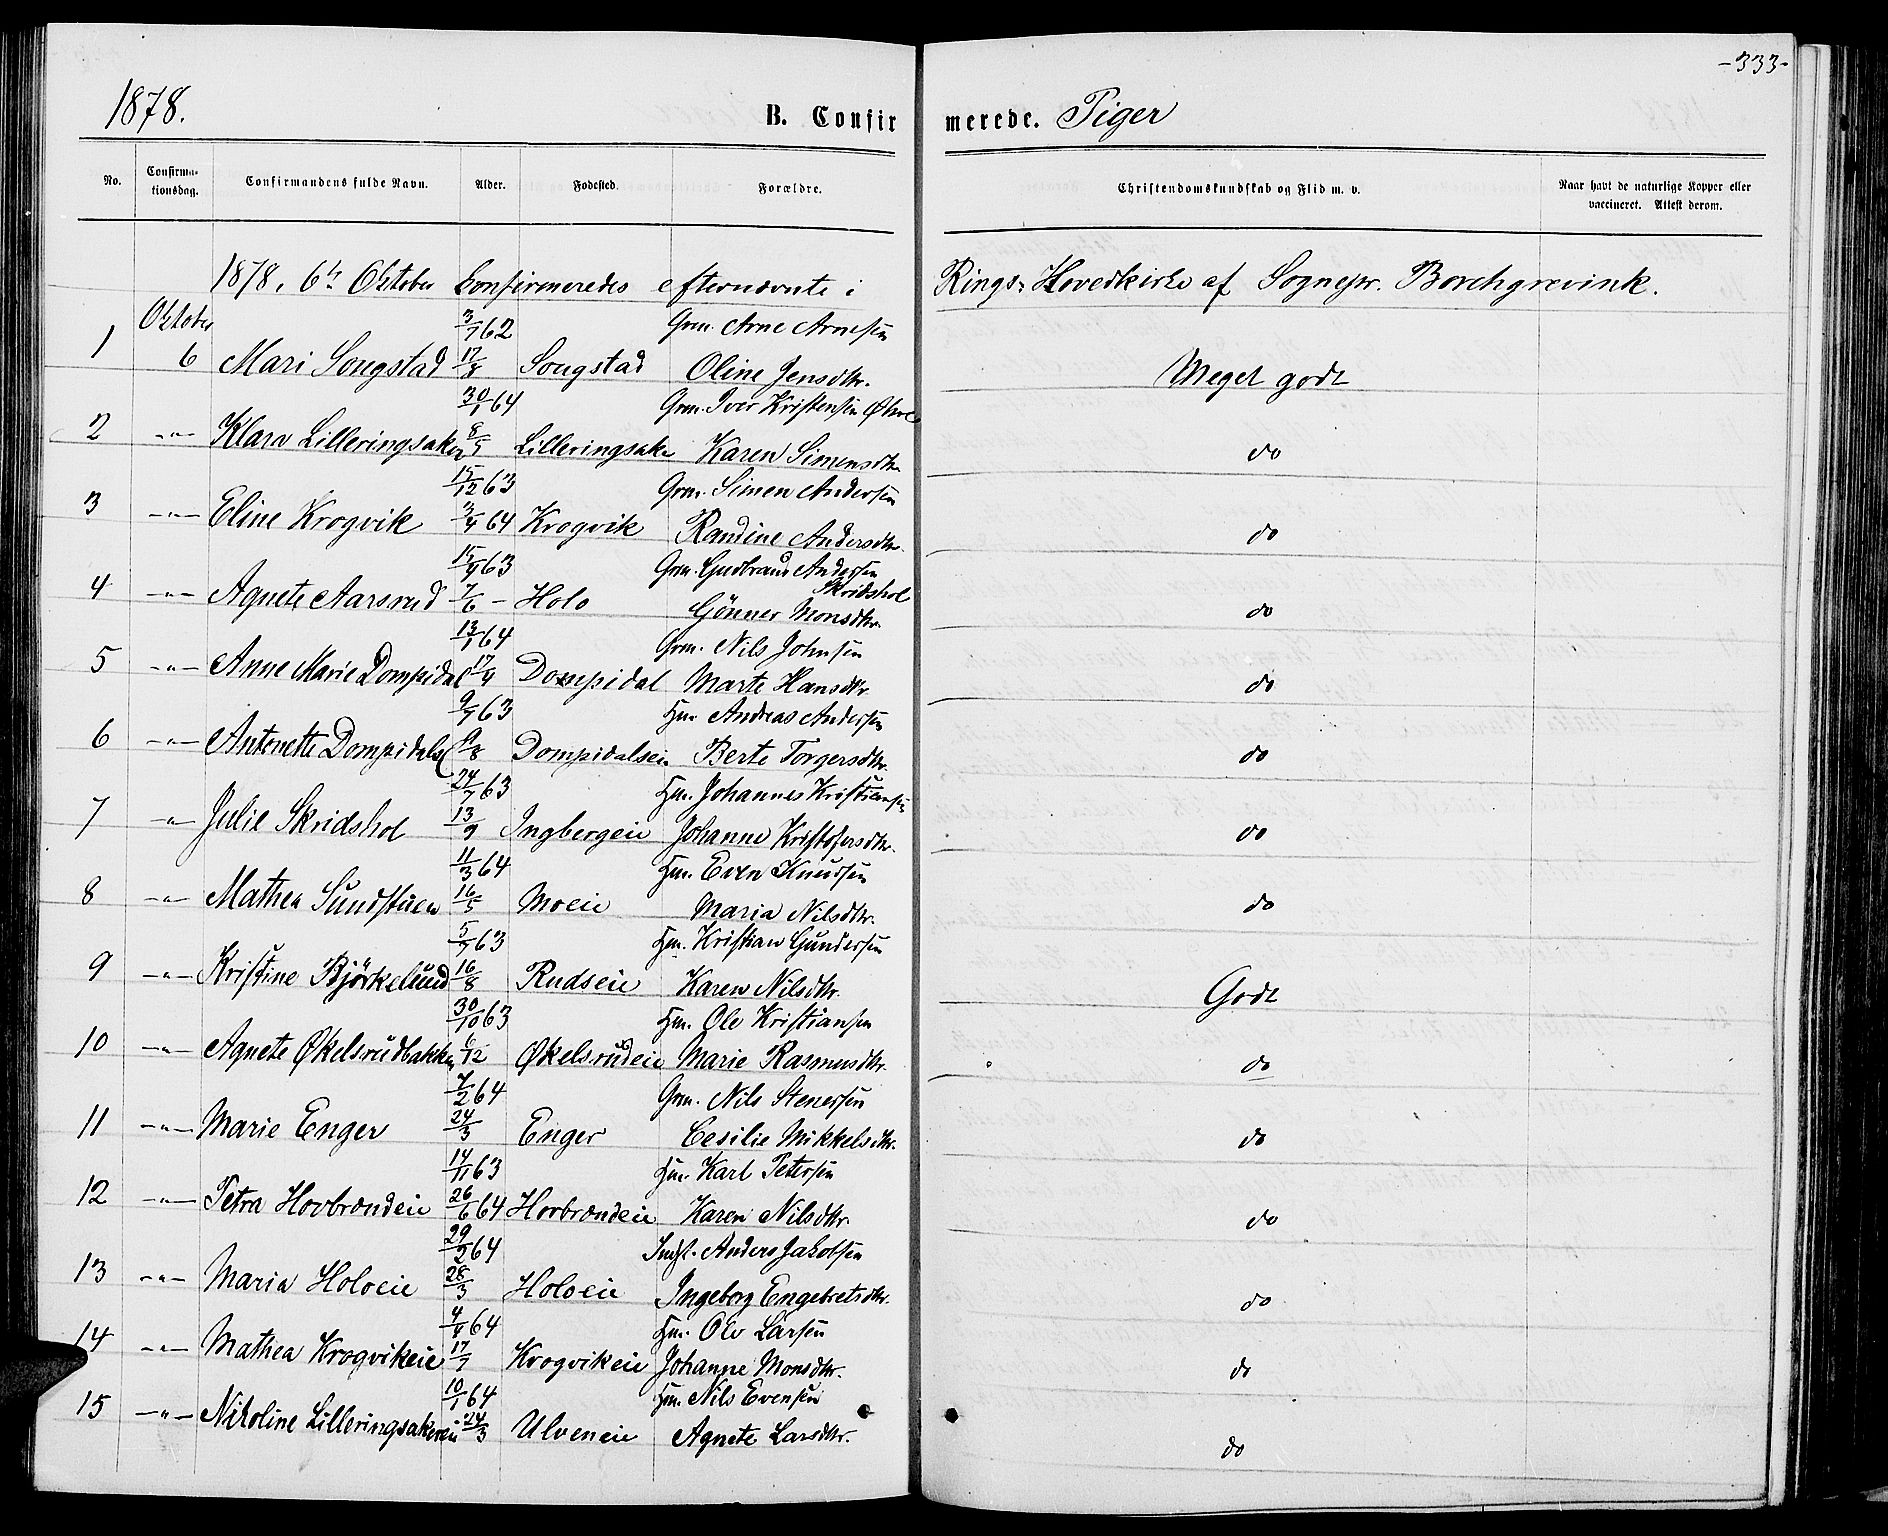 -333-
1878.
B. Confirmerede. Piger
No. Confirmationsdag. Confirmandens fulde Navn. Alder. Fødested. Forældre. Christendomskundskab og Flid m. v. Naar havt de naturlige Kopper eller vaccineret. Attest derom.
1878, 6te Oktober Confirmeredes efternævnte i Rings: Hovedkirke af Sognepr. Borchgrevink.
Oktober 3/7 62 Grm. Arne Arnesen
1 6 Mari Songstad 17/8 Songstad Oline Jensdtr. Meget godt
30/1 64 Grm. Iver Kristensen
2 -"- Klara Lilleringsaker 8/5 Lilleringsaker Karen Simensdtr do
15/12 63 Grm. Simen Andersen
3 -"- Eline Krogvik 3/4 64 Krogvik Randine Andersdtr. do
15/4 63 Grm. Gudbrand Andersen Skridshol
4 -"- Agnete Aarsrud 7/6 - Holo Gönner Monsdtr. do
13/1 64 Grm. Nils Johnsen
5 -"- Anne Marie Dompidal 17/4 Dompidal Marte Hansdtr. do
9/7 63 Hm. Andreas Andersen
6 -"- Antonette Dompidals 9/8 Dompidalseie Berte Torgersdtr. do
24/7 63 Hm. Johannes Kristiansen
7 -"- Julie Skridshol 13/9 Ingbergeie Johanne Kristofersdtr. do
11/3 64 Hm. Even Knudsen
8 -"- Mathea Sundstuen 16/5 Moeie Maria Nilsdtr. do
5/7 63 Hm. Kristian Gundersen
9 -"- Kristine Björkelund 16/8 Rudseie Karen Nilsdtr. Godt
30/10 63 Hm. Ole Kristiansen
10 -"- Agnete Økelsrudbakken 6/12 Økelsrudeie Marie Rasmusdtr. do
7/2 64 Grm. Nils Stenersen
11 -"- Marie Enger 24/3 Enger Cesilie Mikkelsdtr. do
14/11 63 Hm. Karl Petersen
12 -"- Petra Hovbrændeie 26/6 64 Hovbrændeie Karen Nilsdtr. do
29/2 64 Indst. Anders Jakobsen
13 -"- Maria Holoeie 28/3 Holoeie Ingeborg Engebretsdtr. do
4/4 64 Hm. Ole Larsen
14 -"- Mathea Krogvikeie 17/7 Krogvikeie Johanne Monsdtr. do
10/1 64 Hm. Nils Evensen
15 -"- Nikoline Lilleringsakereie 24/3 Ulveneie Agnete Larsdtr. do